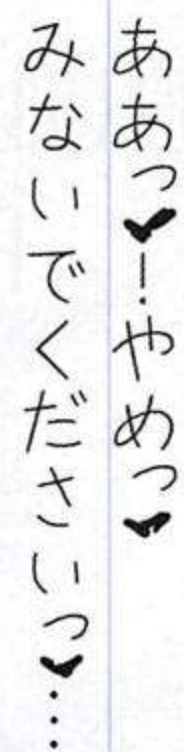 ああっ♥！やめっ♥
みないでくださいっ♥……